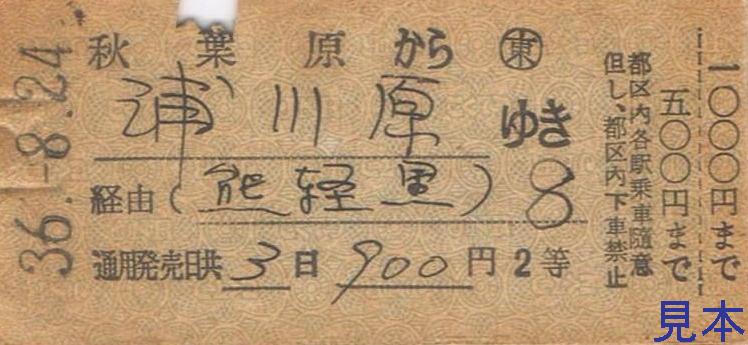 36.-8.24
秋葉原から ㊞東
浦川原ゆき
経由(熊軽黒) 8
通用発売日共3日 900円2等
一〇〇〇円まで
五〇〇円まで
都区内各駅乗車随意
但し、都区内下車禁止
見本